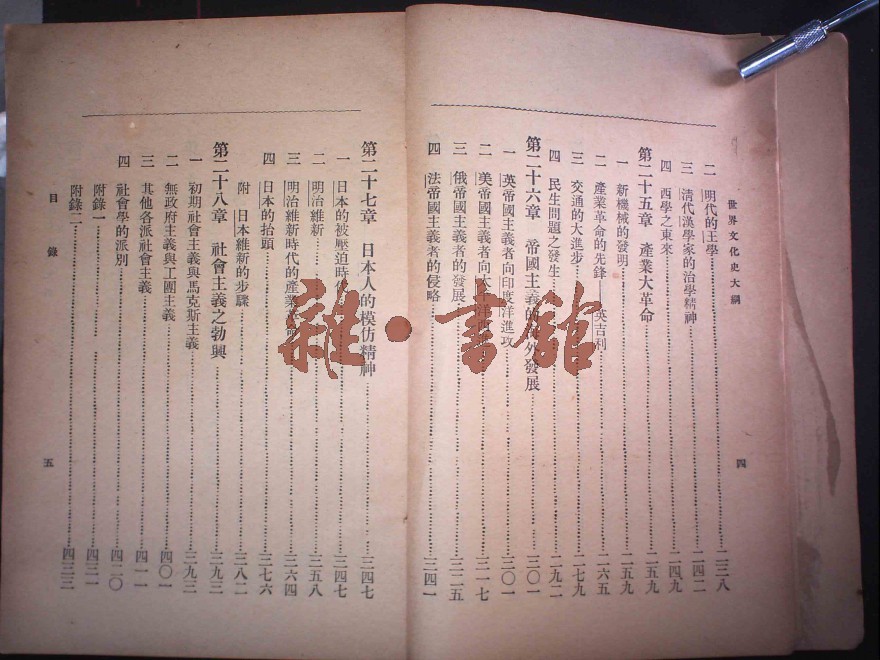 世界文化史大綱
四
二 明代的王學……二三八
三 清代漢學家的治學精神……二四二
四 西學之東來……二四九
第二十五章 產業大革命……二五九
一 新機械的發明……二五九
二 產業革命的先鋒——英吉利……二六五
三 交通的大進步……二七九
四 民生問題之發生……二九二
第二十六章 帝國主義的海外發展……三〇一
一 英帝國主義者向印度洋進攻……三〇一
二 美帝國主義者向太平洋西進……三一七
三 俄帝國主義者的發展……三二五
四 法帝國主義者的侵略……三四一
第二十七章 日本人的模仿精神……三四七
一 日本的被壓迫時代……三四七
二 明治維新……三五八
三 明治維新時代的產業革命……三六四
四 日本的抬頭……三七六
附 日本維新的步驟……三八二
第二十八章 社會主義之勃興……三九三
一 初期社會主義與馬克斯主義……三九三
二 無政府主義與工團主義……四〇一
三 其他各派社會主義……四一一
四 社會學的派別……四二〇
附錄一……四三一
附錄二……四三三
目錄
五
雜·書館